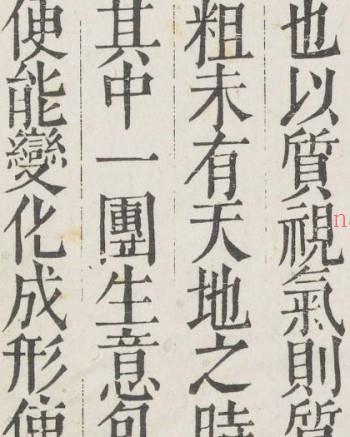 也以質視氣則質
粗未有天地之時
其中一團生意
便能變化成形
n